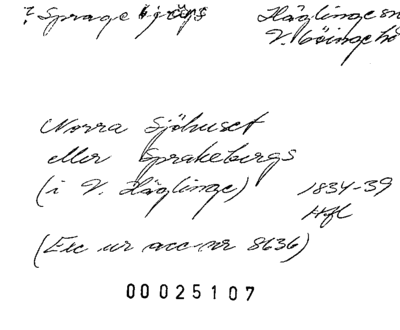 ? Sprage bjergs Häglinge sn
V. Göinge hd
Norra Sjöhuset
eller Sprakebergs
(i V. Häglinge) 1834-39
Hfl
(Exc ur acc-nr 8636)
00025107